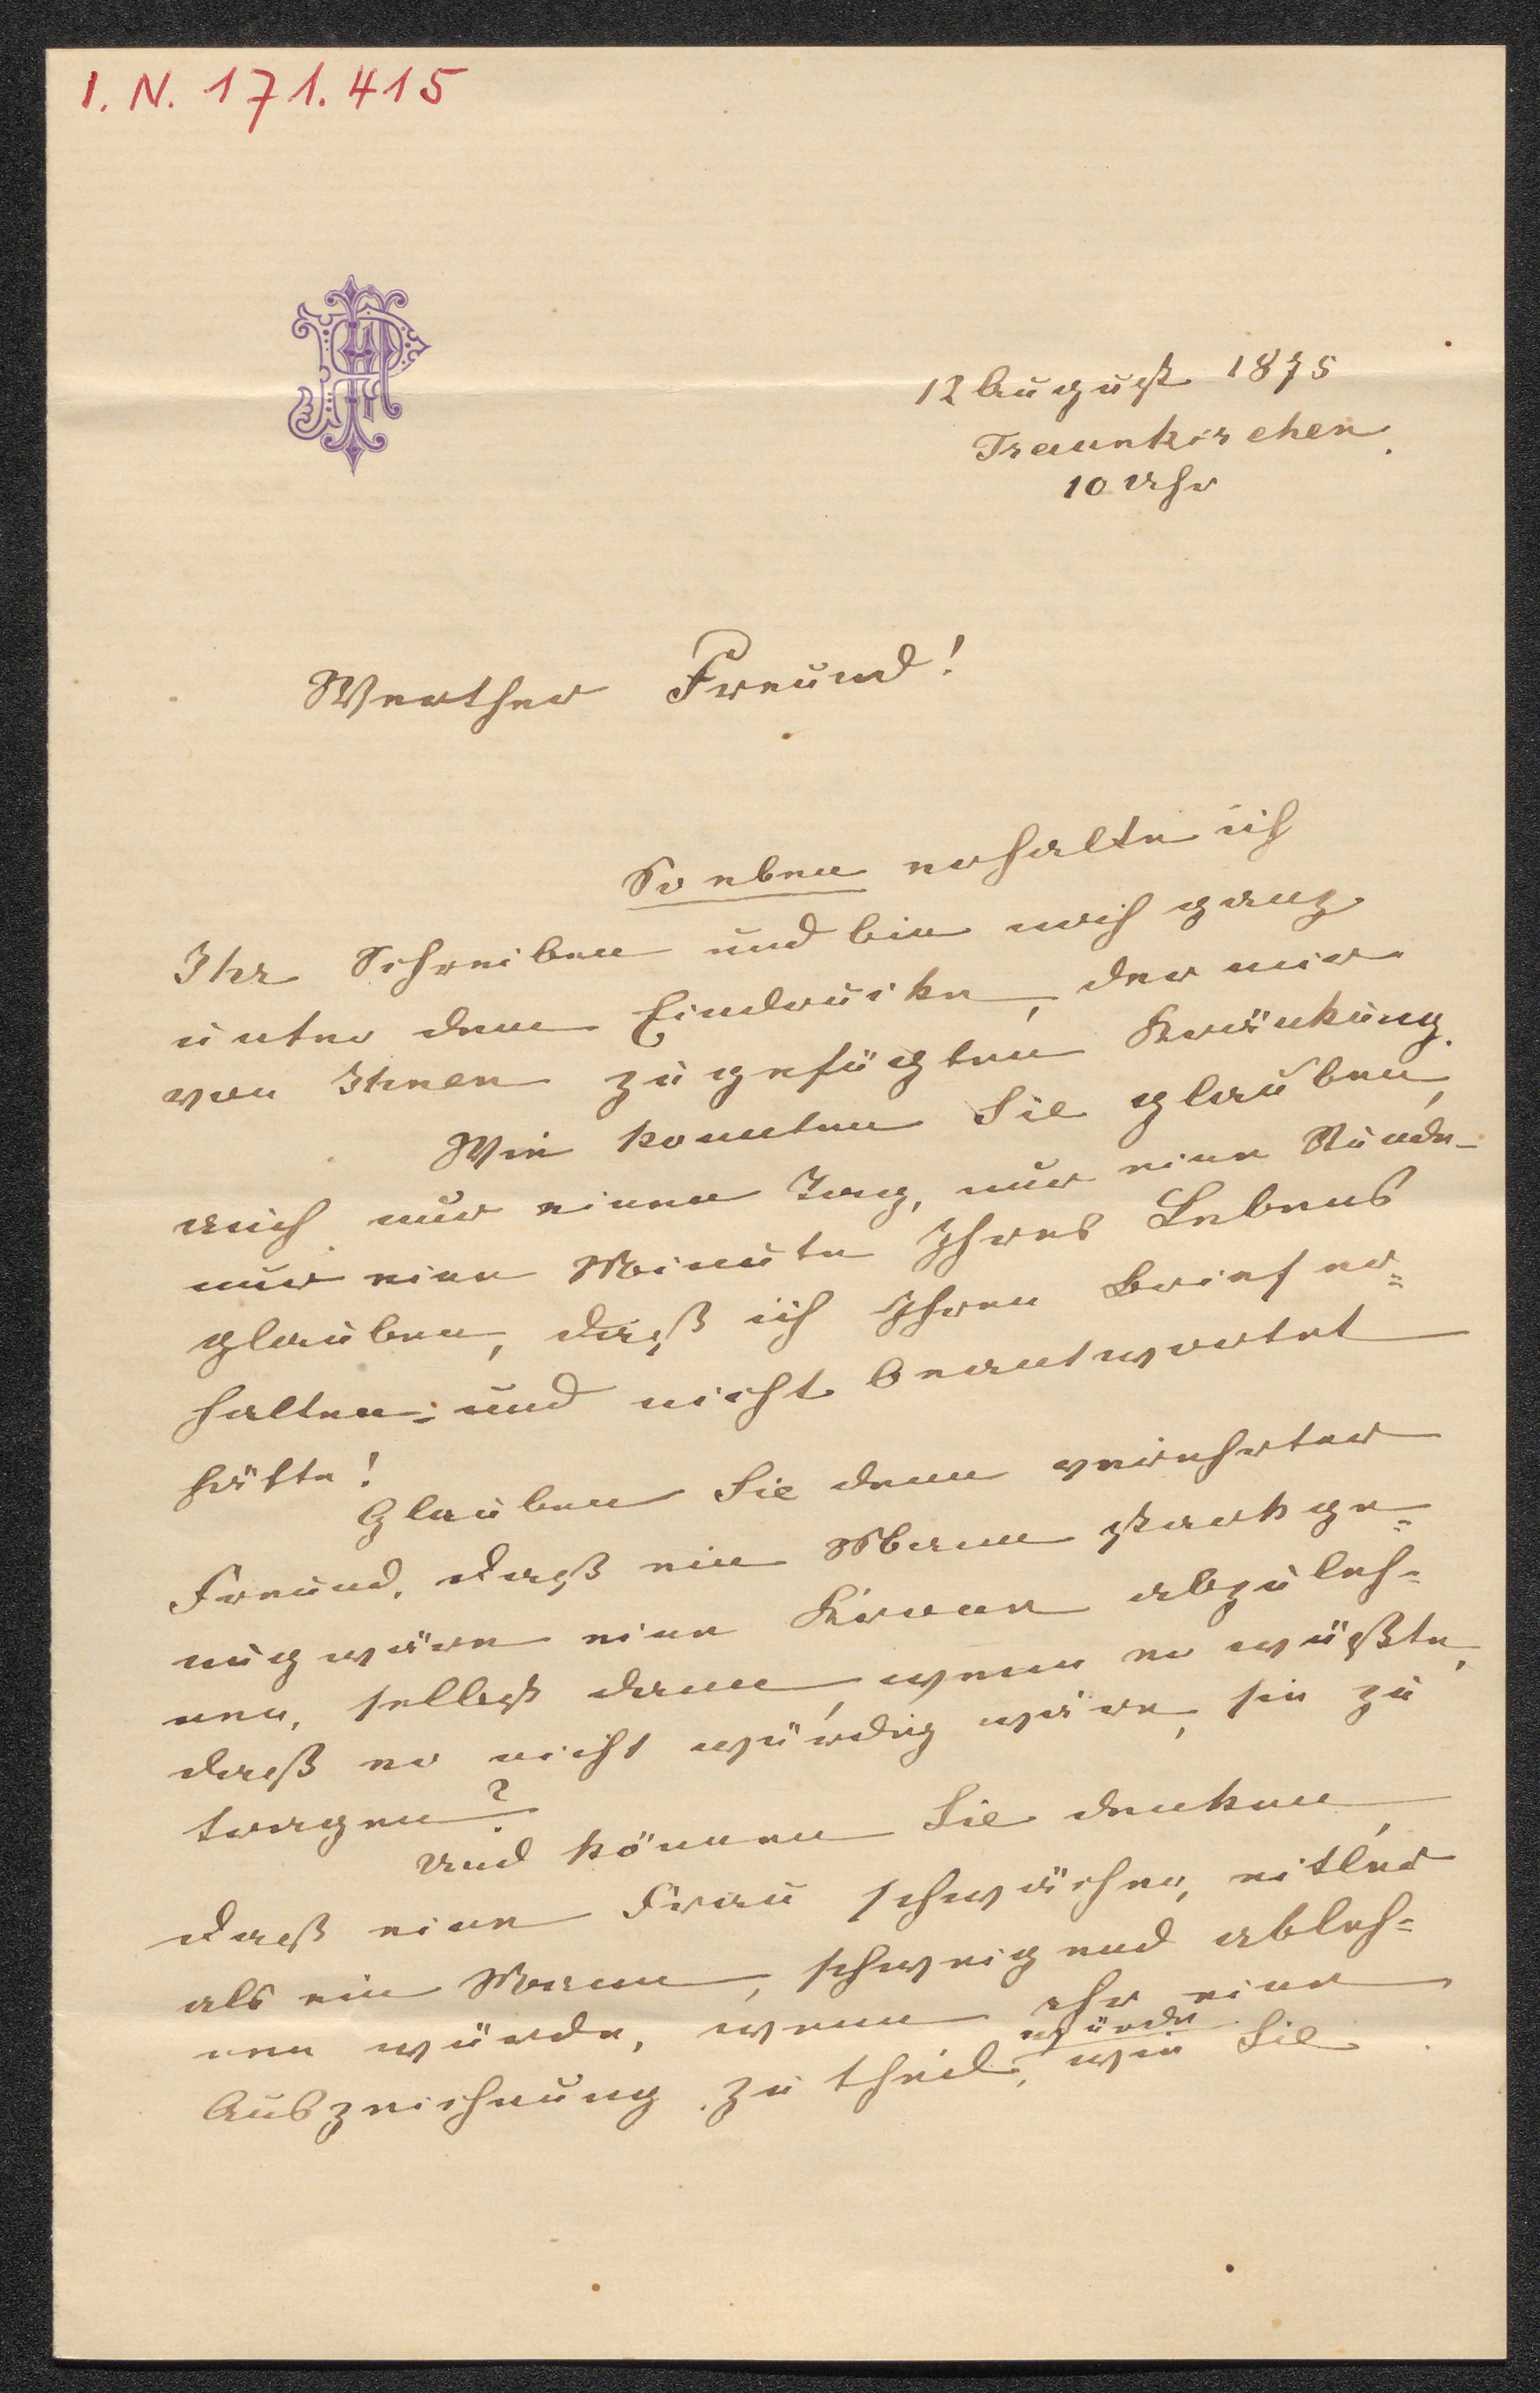 I. N. 171.415
12 August 1875
Traunkirchen.
10 Uhr
Werther Freund!
So eben erhalte ich
Ihr Schreiben und bin noch ganz
unter dem Eindrucke, der mir
von Ihnen zugefügten Kränkung.
Wie konnten Sie glauben,
auch nur einen Tag, nur eine Stunde
nur eine Minute Ihres Lebens
glauben, daß ich Ihren Brief er=
halten und nicht beantwortet
hätte!
Glauben Sie denn verehrter
Freund, daß ein Mann stark ge=
nug wäre eine Krone abzuleh=
nen, selbst dann, wenn er wüßte,
daß er nicht würdig wäre, sie zu
tragen?
Und können Sie denken,
daß eine Frau schwächer, eitler
als ein Mann, schweigend ableh=
nen würde, wenn ihr eine
würde
Auszeichnung zu theil, wie Sie